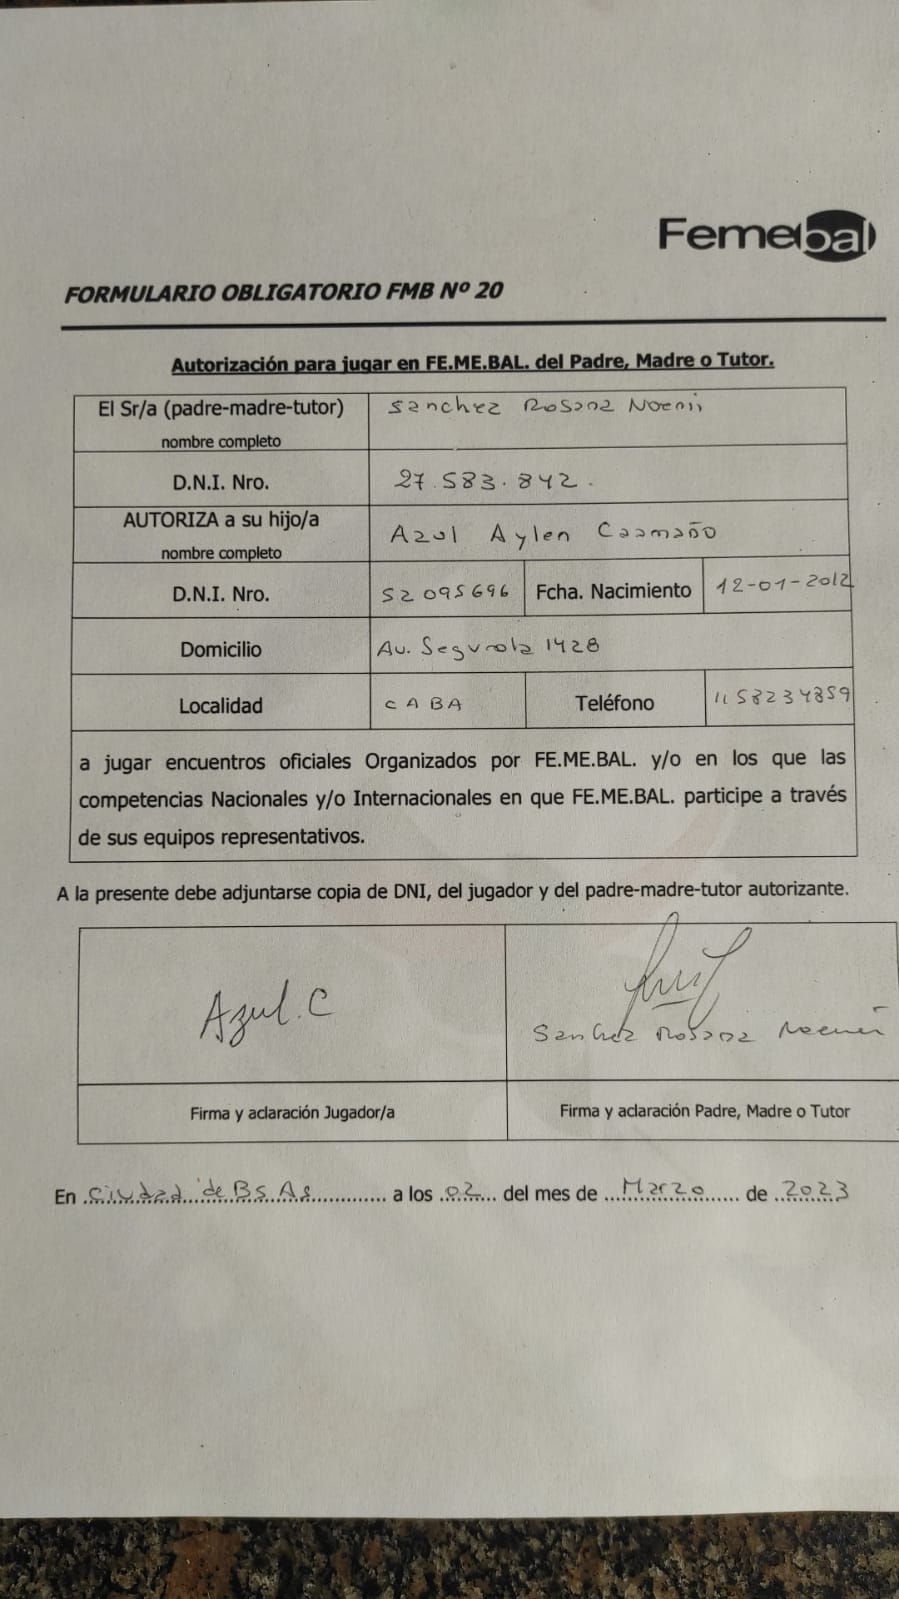 Femebal
FORMULARIO OBLIGATORIO FMB Nº 20
Autorización para jugar en FE.ME.BAL. del Padre, Madre o Tutor.
El Sr/a (padre-madre-tutor) Sanchez Rosana Noemi
nombre completo
D.N.I. Nro. 27.583.842.
AUTORIZA a su hijo/a Azul Aylen Caamaño
nombre completo
D.N.I. Nro. 52095696 Fcha. Nacimiento 12-01-2012
Domicilio Av. Segurola 1428
Localidad CABA Teléfono 1158234859
a jugar encuentros oficiales Organizados por FE.ME.BAL. y/o en los que las
competencias Nacionales y/o Internacionales en que FE.ME.BAL. participe a través
de sus equipos representativos.
A la presente debe adjuntarse copia de DNI, del jugador y del padre-madre-tutor autorizante.
Azul.C
Sanchez Rosana Noemí
Firma y aclaración Jugador/a Firma y aclaración Padre, Madre o Tutor
En Ciudad de Bs As a los 02 del mes de Marzo de 2023